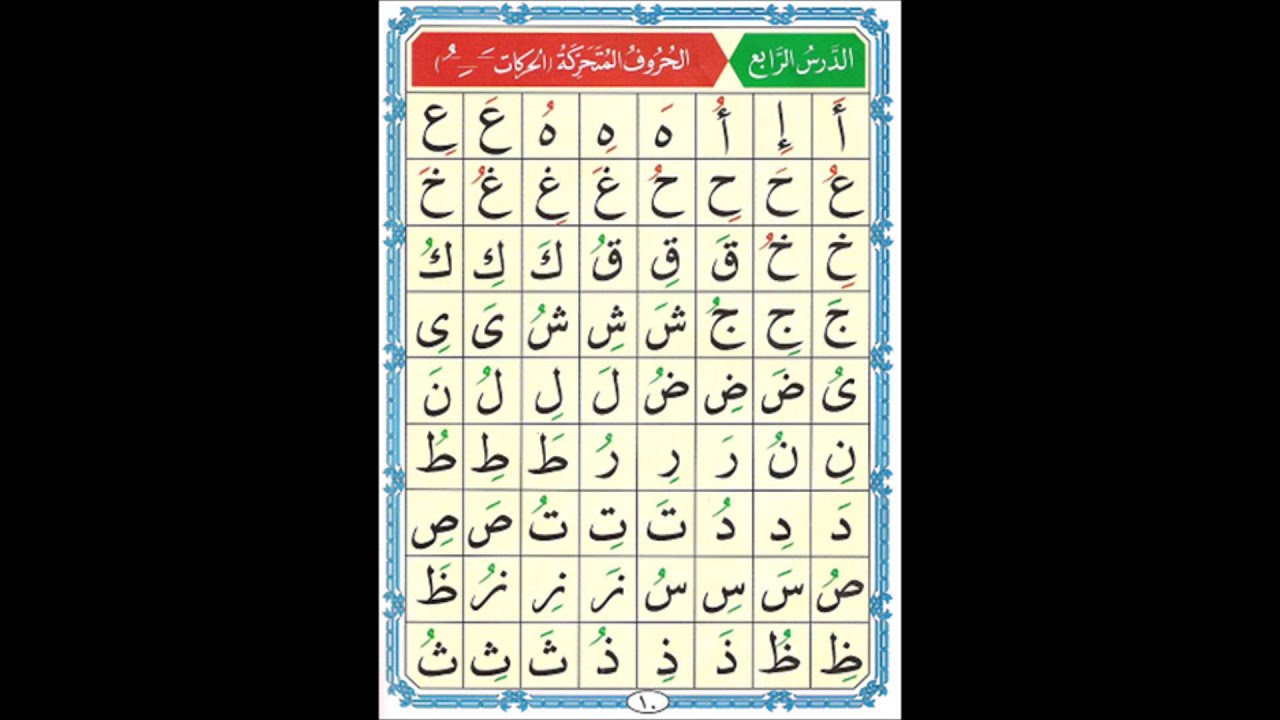 الدَّرسُ الرَّابع الحُرُوفُ المُتَحَرِّكَةُ (الحركات ـَـ ـِـ ـُـ)
أَ إِ أُ هَ هِ هُ عَ عِ
عُ حَ حِ حُ غَ غِ غُ خَ
خِ خُ قَ قِ قُ كَ كِ كُ
جَ جِ جُ شَ شِ شُ ىَ ىِ
ىُ ضَ ضِ ضُ لَ لِ لُ نَ
نِ نُ رَ رِ رُ طَ طِ طُ
دَ دِ دُ تَ تِ تُ صَ صِ
صُ سَ سِ سُ زَ زِ زُ ظَ
ظِ ظُ ذَ ذِ ذُ ثَ ثِ ثُ
١٠